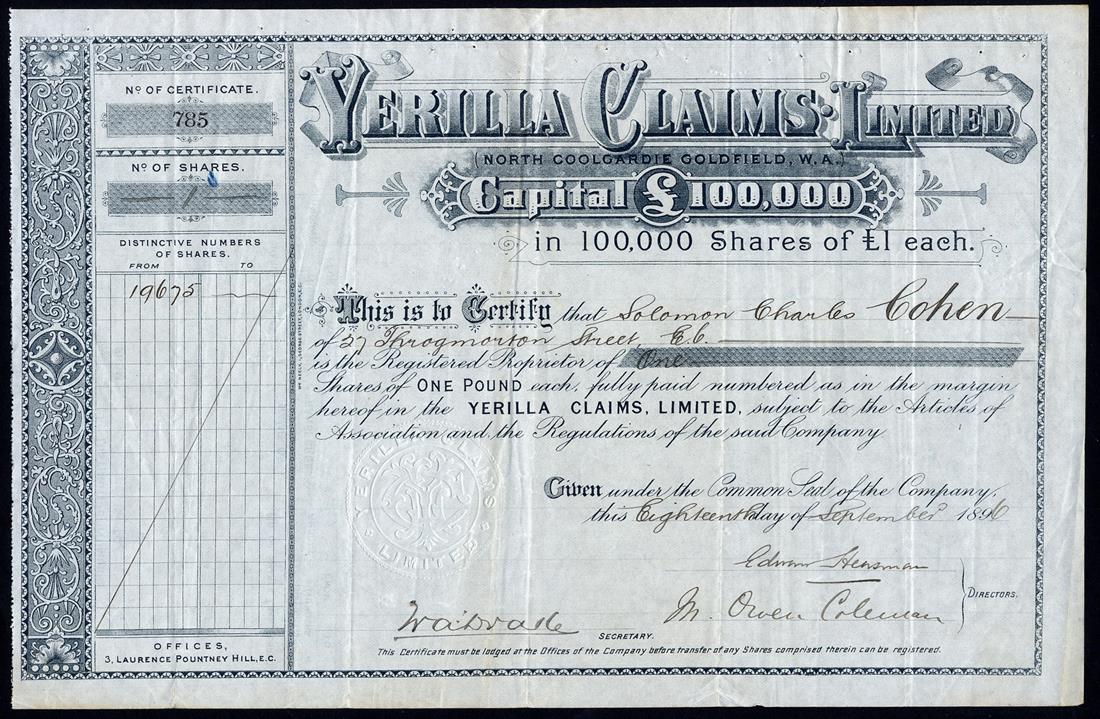 No OF CERTIFICATE.
785
No OF SHARES.
1
DISTINCTIVE NUMBERS
OF SHARES.
FROM TO
19675
OFFICES,
3, LAURENCE POUNTNEY HILL, E.C.
YERILLA CLAIMS: LIMITED
(NORTH COOLGARDIE GOLDFIELD, W.A.)
Capital £100,000
in 100,000 Shares of £1 each.
This is to Certify that Solomon Charles Cohen
of 27 Throgmorton Street, E.C.
is the Registered Proprietor of One
Shares of ONE POUND each, fully paid numbered as in the margin
hereof in the YERILLA CLAIMS, LIMITED, subject to the Articles of
Association and the Regulations of the said Company
YERILLA CLAIMS
LIMITED
Given under the Common Seal of the Company,
this Eighteenth day of September 1896
M. Owen Coleman
DIRECTORS.
SECRETARY.
This Certificate must be lodged at the Offices of the Company before transfer of any Shares comprised therein can be registered.